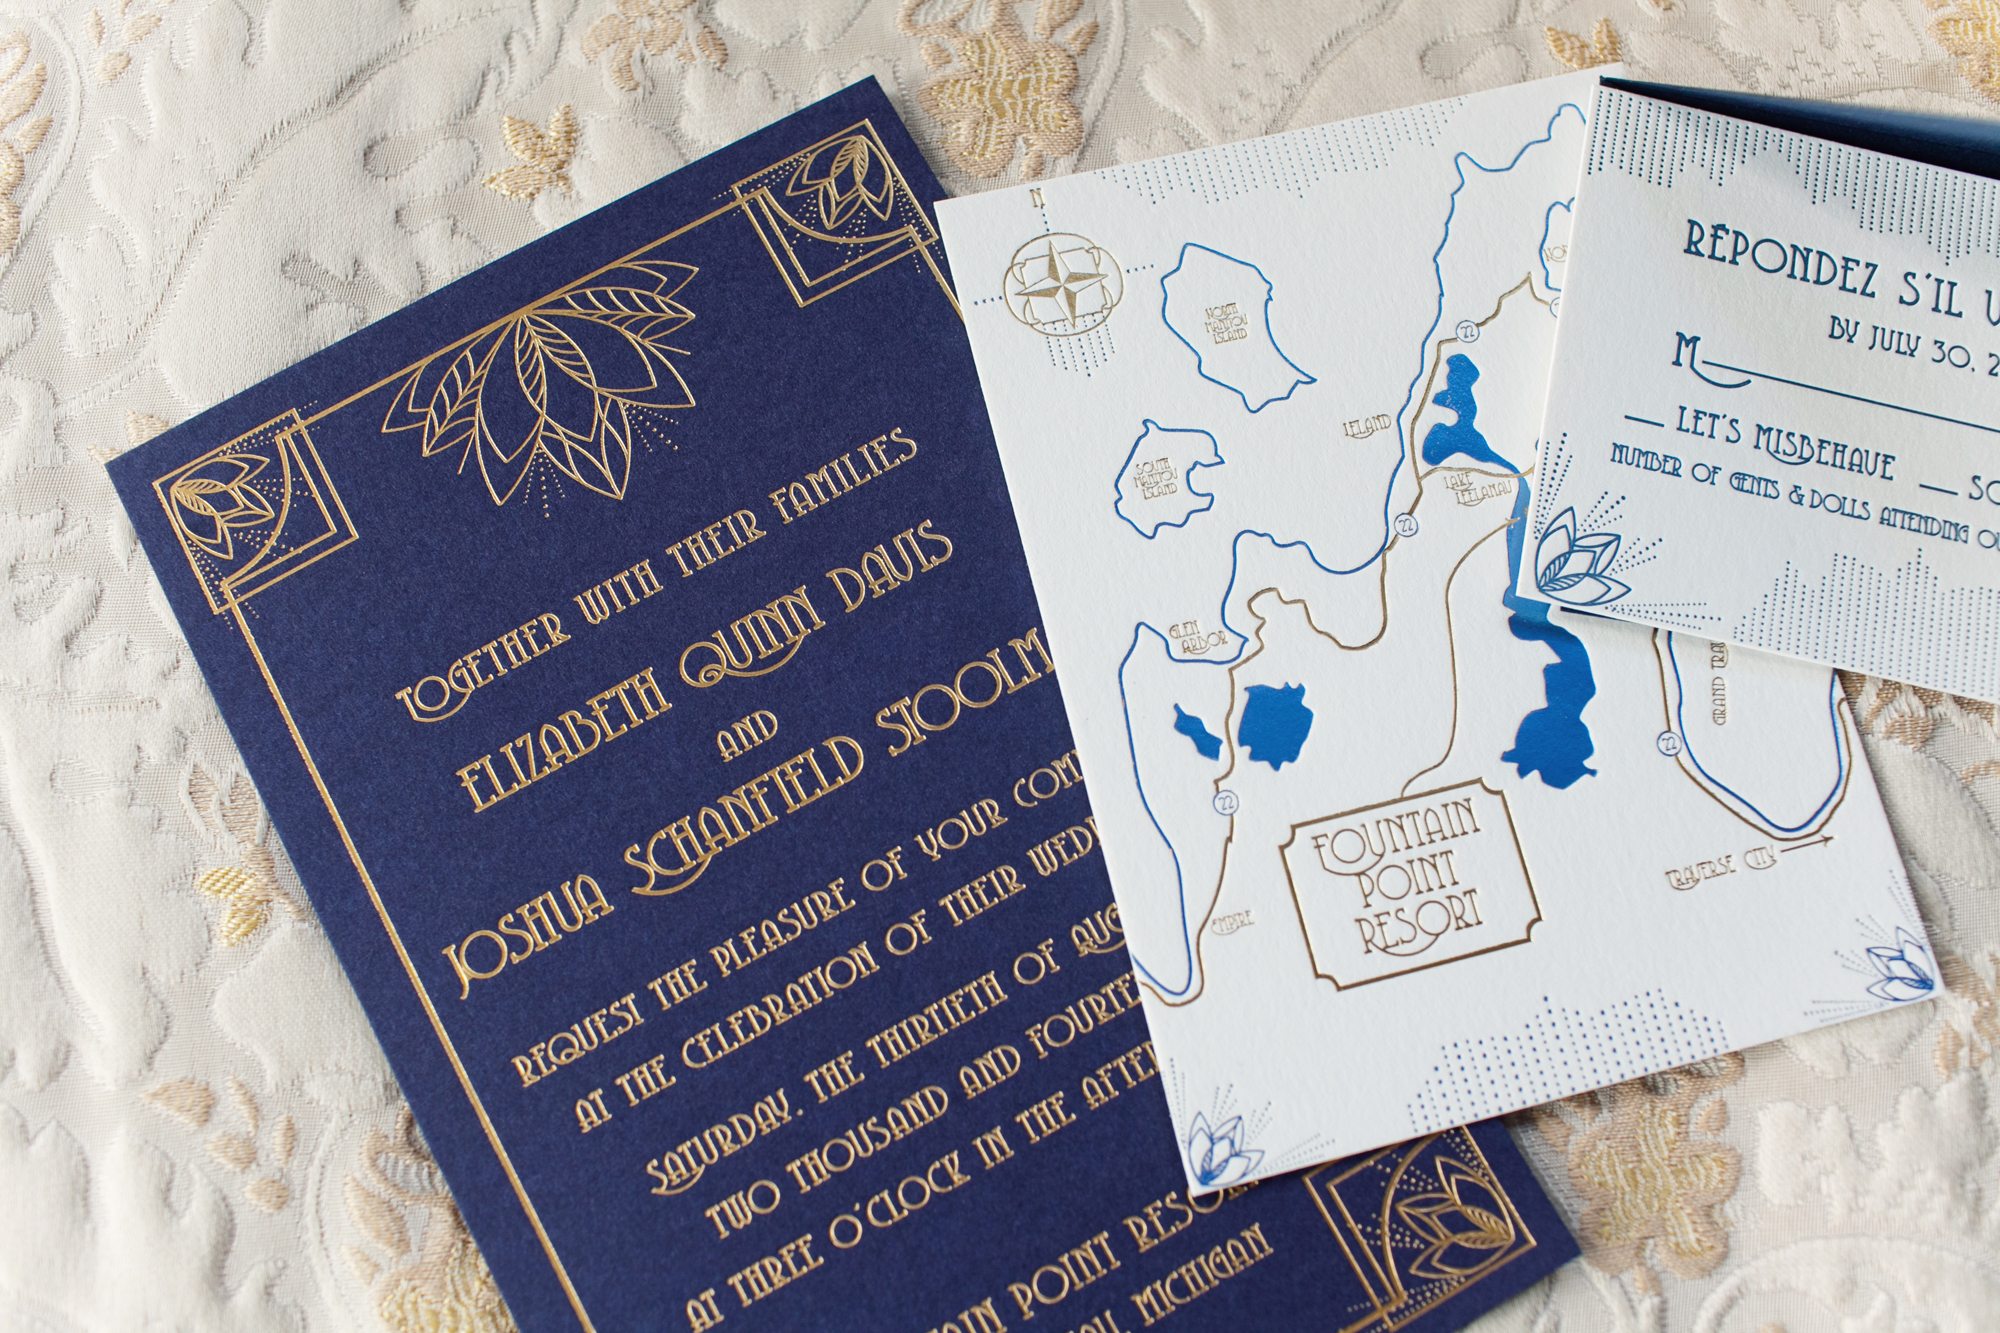 TOGETHER WITH THEIR FAMILIES
ELIZABETH QUINN DAVIS
AND
JOSHUA SCHANFIELD
REQUEST THE PLEASURE OF YOUR
AT THE CELEBRATION OF THEIR
SATURDAY, THE THIRTIETH OF
TWO THOUSAND AND
AT THREE O'CLOCK IN THE
POINT
MICHIGAN
N
NORTH
MANITOU
ISLAND
SOUTH
MANITOU
ISLAND
LELAND
22
LAKE
LEELANAU
22
GLEN
ARBOR
22
EMPIRE
FOUNTAIN
POINT
RESORT
22
GRAND
TRAVERSE CITY
RÉPONDEZ S'IL
BY JULY 30,
M
LET'S MISBEHAVE
NUMBER OF GENTS & DOLLS ATTENDING